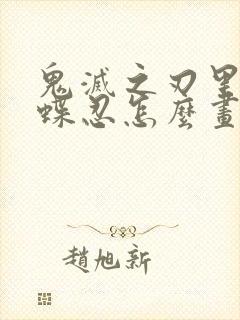 鬼滅之刃里
蝶忍怎麼畫
趙旭新